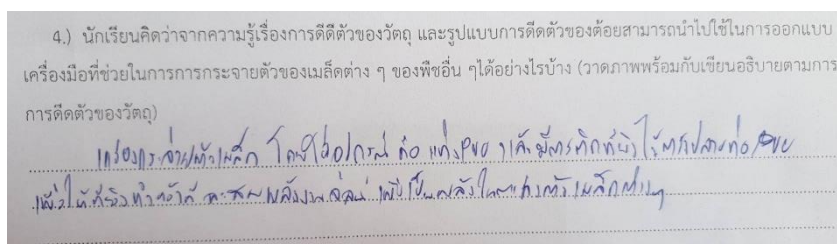 4.) นักเรียนคิดว่าจากความรู้เรื่องการดีดีตัวของวัตถุ และรูปแบบการดีดตัวของต้อยสามารถนำไปใช้ในการออกแบบ
เครื่องมือที่ช่วยในการการกระจายตัวของเมล็ดต่าง ๆ ของพืชอื่น ๆได้อย่างไรบ้าง (วาดภาพพร้อมกับเขียนอธิบายตามการ
การดีดตัวของวัตถุ)
เครื่องกระจายตัวเมล็ด โดยใช้อุปกรณ์ คือ แท่งPVC แล้วมีการติดที่ยิงไว้ตรงปลายท่อ PVC
เพื่อให้ที่ยิงทำหน้าที่ สะสมพลังงาน เพื่อเป็น ตัวเมล็ดต่างๆ